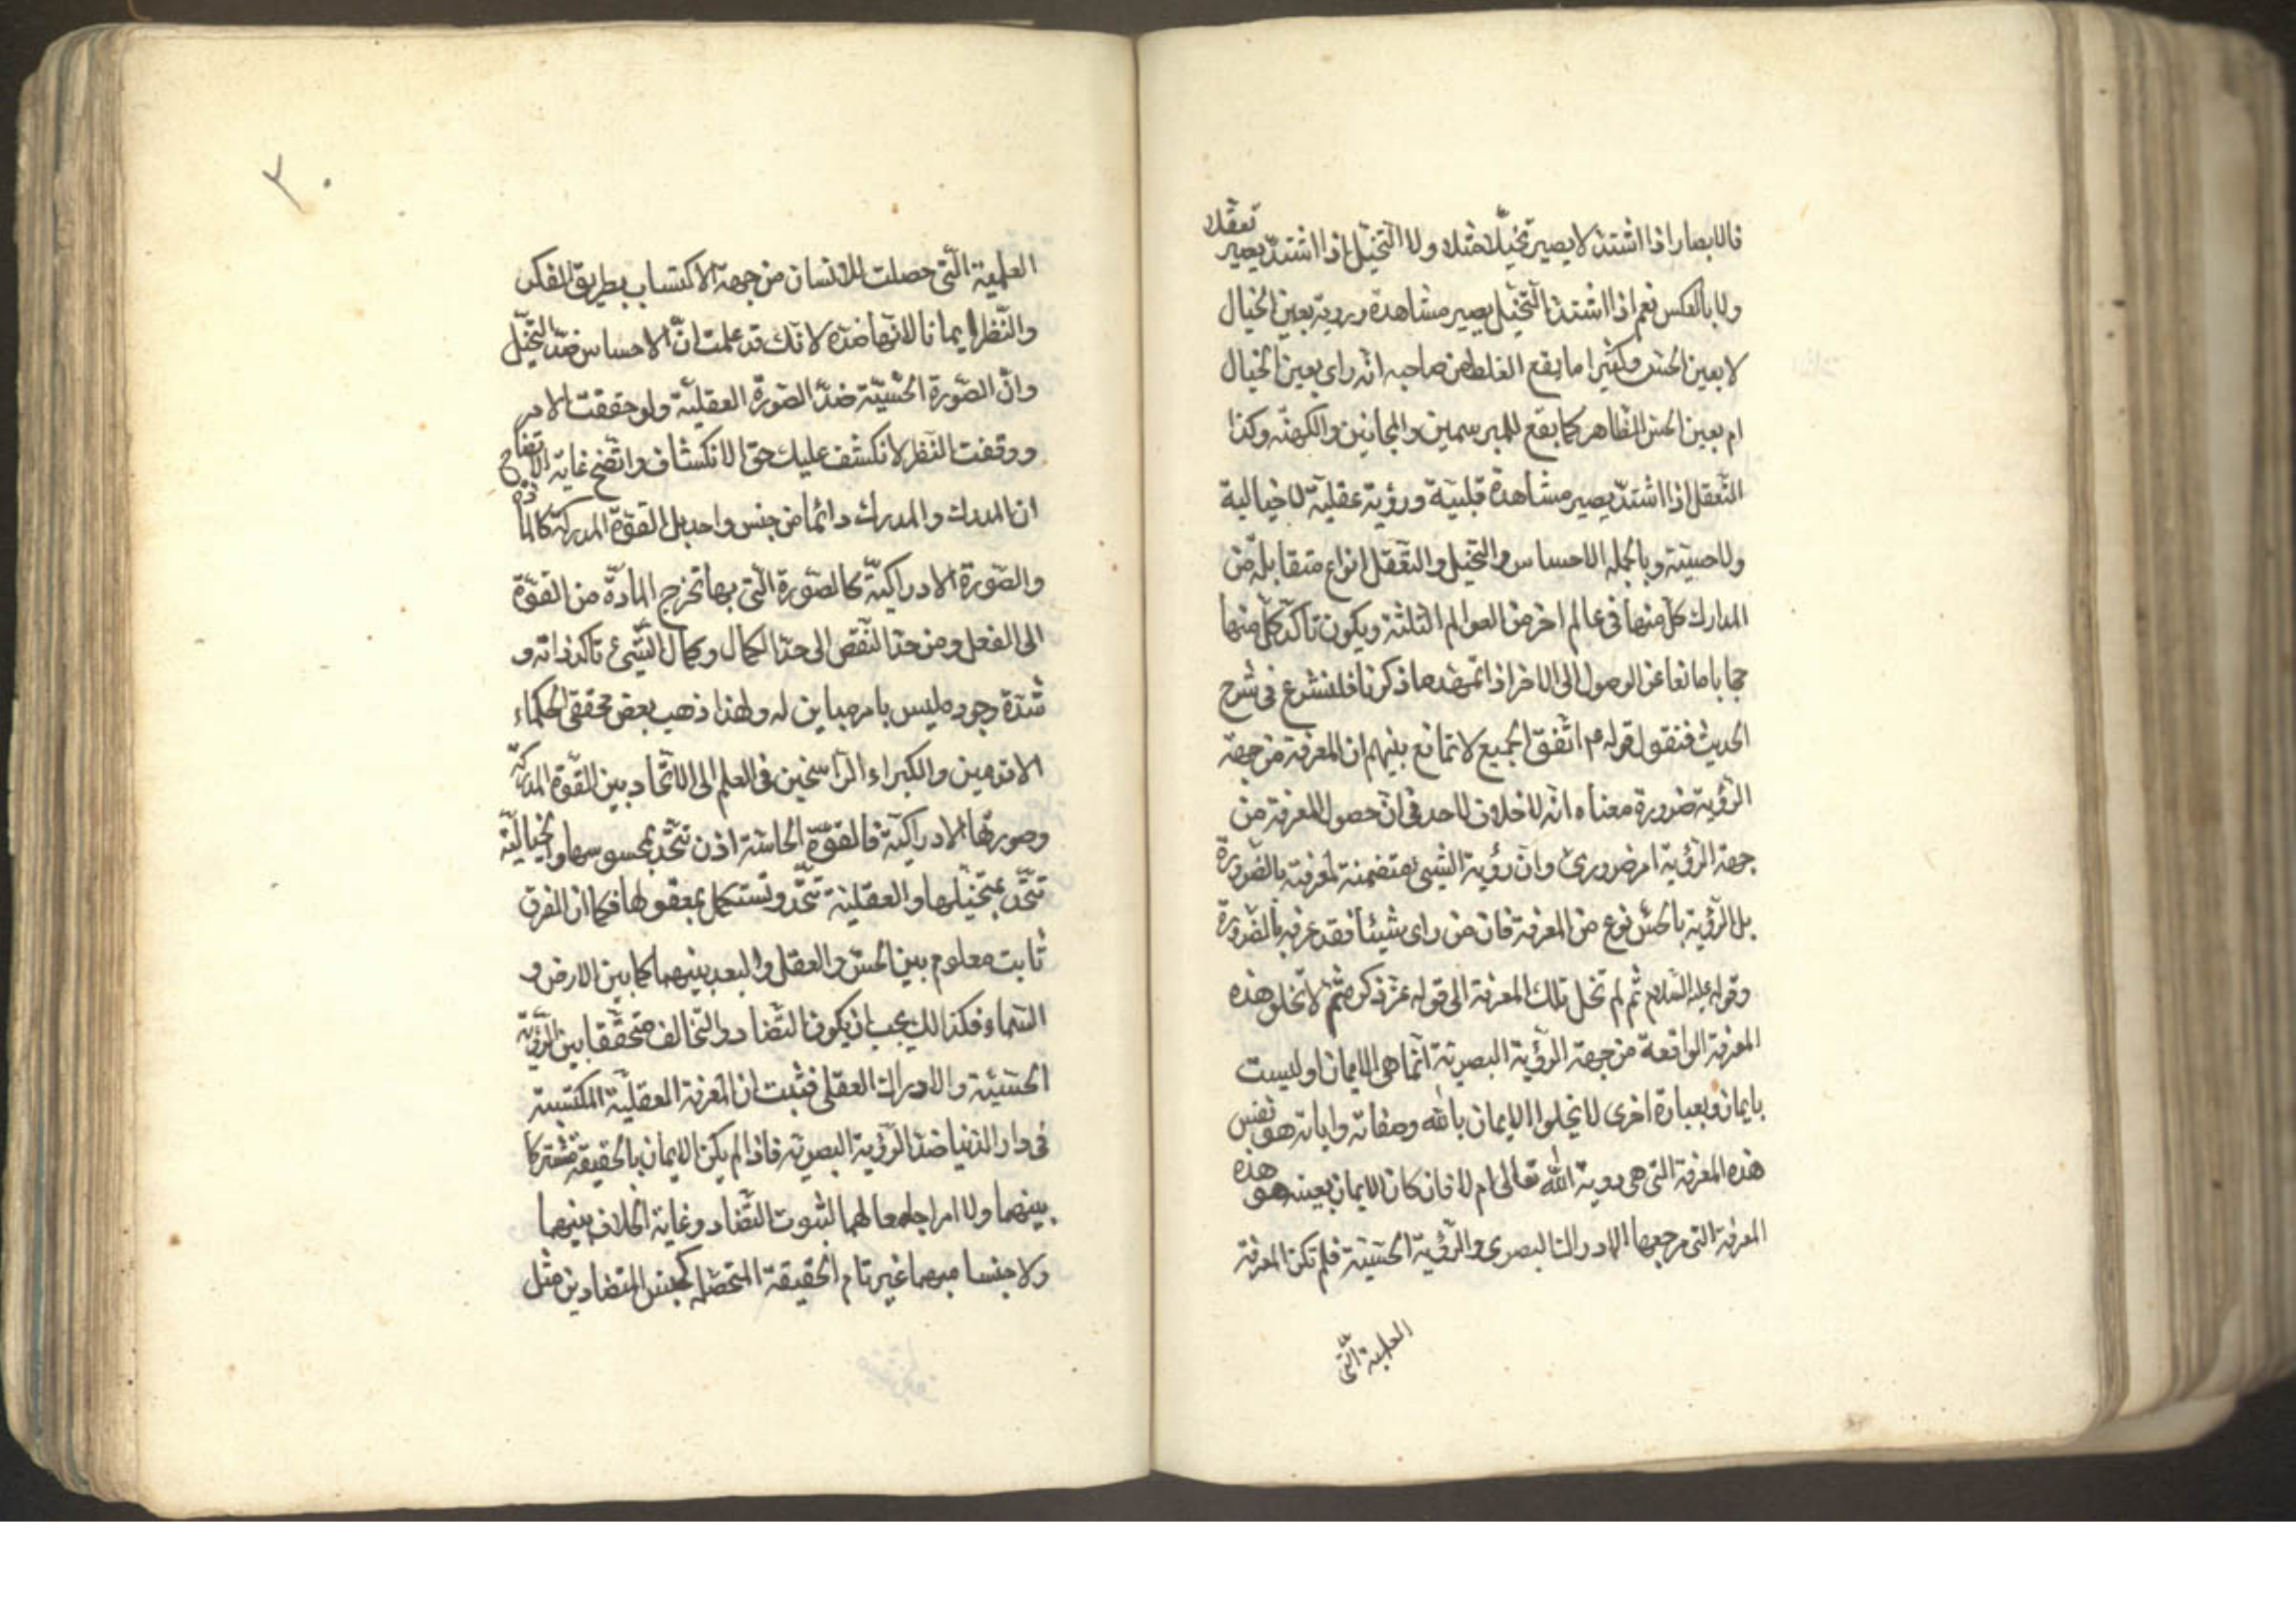 فالابصار اذا اشتد لا يصير تخيلا مثلا ولا التخيل اذا اشتد يصير تعقلا
ولا بالعكس نعم اذا اشتد التخيل يصير مشاهدة ورؤية بعين الخيال
لا بعين الحس وكثيرا ما يقع الغلط من صاحبه انه راى بعين الخيال
ام بعين الحس الظاهر كما يقع للمبرسمين والمجانين والكهنه وكذا
التعقل اذا اشتد يصير مشاهدة قلبية ورؤية عقلية لا خيالية
ولا حسية وبالجمله الاحساس والتخيل والتعقل انواع متقابلة من
المدارك كل منها في عالم اخر من العوالم الثلثة ويكون تاكد كل منها
حجابا مانعا عن الوصول الى الاخر اذا تمهد ما ذكرنا فلنشرع في شرح
الحديث فنقول قوله م اتفق الجميع لا تمانع بينهم ان المعرفة من جهة
الرؤية ضرورة معناه انه لا خلاف لاحد في ان حصول المعرفة من
جهة الرؤية امر ضروري وان رؤية الشيئ متضمنة لمعرفته بالضرورة
بل الرؤية بالحس نوع من المعرفة فان من راى شيئا فقد عرفه بالضرورة
وقوله عليه السلام ثم لم تخل تلك المعرفة الى قوله عز ذكره ثم لا تخلو هذه
المعرفة الواقعة من جهة الرؤية البصرية انما هى الايمان او ليست
بايمان وبعبارة اخرى لا يخلوا الايمان بالله وصفاته واياته هو نفس
هذه المعرفة التى هى روية الله تعالى ام لا فان كان الايمان بعينه هو هذه
المعرفة التى مرجعها الادراك البصرى والرؤية الحسية فلم تكن المعرفة
العلمية التى
٢٠
العلمية التى حصلت للانسان من جهة الاكتساب بطريق الفكر
والنظر ايمانا لانها ضده لانك قد علمت ان الاحساس ضد التخيل
وان الصورة الحسية ضد الصورة العقلية ولو حققت الامر
ووقفت النظر لانكشف عليك حق الانكشاف واتضح غاية الاتضاح
ان المدرك والمدرك دائما من جنس واحد بل القوة المدركة كالمادة
والصورة الادراكية كالصورة التى بها تخرج المادة من القوة
الى الفعل ومن حد النقص الى حد الكمال وكمال الشئ تاكد ذاته و
شدة وجوده ليس بامر مباين له ولهذا ذهب بعض محققى الحكماء
الاقدمين والكبراء الراسخين فى العلم الى الاتحاد بين القوة المدركة
وصورتها الادراكية فالقوة الحاسة اذن تتحد بمحسوسها والخيالية
تتحد بمتخيلها والعقلية تتحد وتستكمل بمعقولها فكما ان الفرق
ثابت معلوم بين الحس والعقل والبعد بينهما كما بين الارض و
السماء فكذالك يجب ان يكون التضاد والتخالف متحققا بين الرؤية
الحسية والادراك العقلى فثبت ان المعرفة العقلية المكتسبة
فى دار الدنيا ضد الرؤية البصرية فاذا لم يكن الايمان بالحقيقة مشتركا
بينهما ولا امرا جامعا لهما لثبوت التضاد وغاية الخلاف بينهما
ولا جنسا مبهما غير تام الحقيقة المتحصله كجنس المتضادين مثل